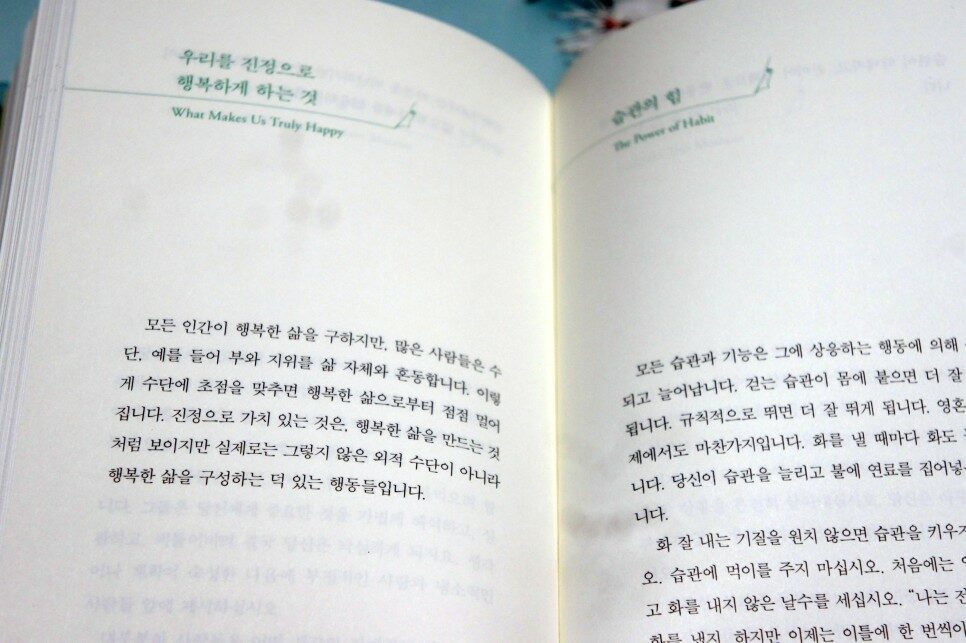 우리를 진정으로
행복하게 하는 것
What Makes Us Truly Happy
모든 인간이 행복한 삶을 구하지만, 많은 사람들은 수
단, 예를 들어 부와 지위를 삶 자체와 혼동합니다. 이렇
게 수단에 초점을 맞추면 행복한 삶으로부터 점점 멀어
집니다. 진정으로 가치 있는 것은, 행복한 삶을 만드는 것
처럼 보이지만 실제로는 그렇지 않은 외적 수단이 아니라
행복한 삶을 구성하는 덕 있는 행동들입니다.
습관의 힘
The Power of Habit
모든 습관과 기능은 그에 상응하는 행동에 의해
되고 늘어납니다. 걷는 습관이 몸에 붙으면 더 잘
됩니다. 규칙적으로 뛰면 더 잘 뛰게 됩니다. 영혼
제에서도 마찬가지입니다. 화를 낼 때마다 화도
니다. 당신이 습관을 늘리고 불에 연료를 집어넣
니다.
화 잘 내는 기질을 원치 않으면 습관을 키우지
오. 습관에 먹이를 주지 마십시오. 처음에는
고 화를 내지 않은 날수를 세십시오. “나는 전
화를 냈지. 하지만 이제는 이틀에 한 번씩이